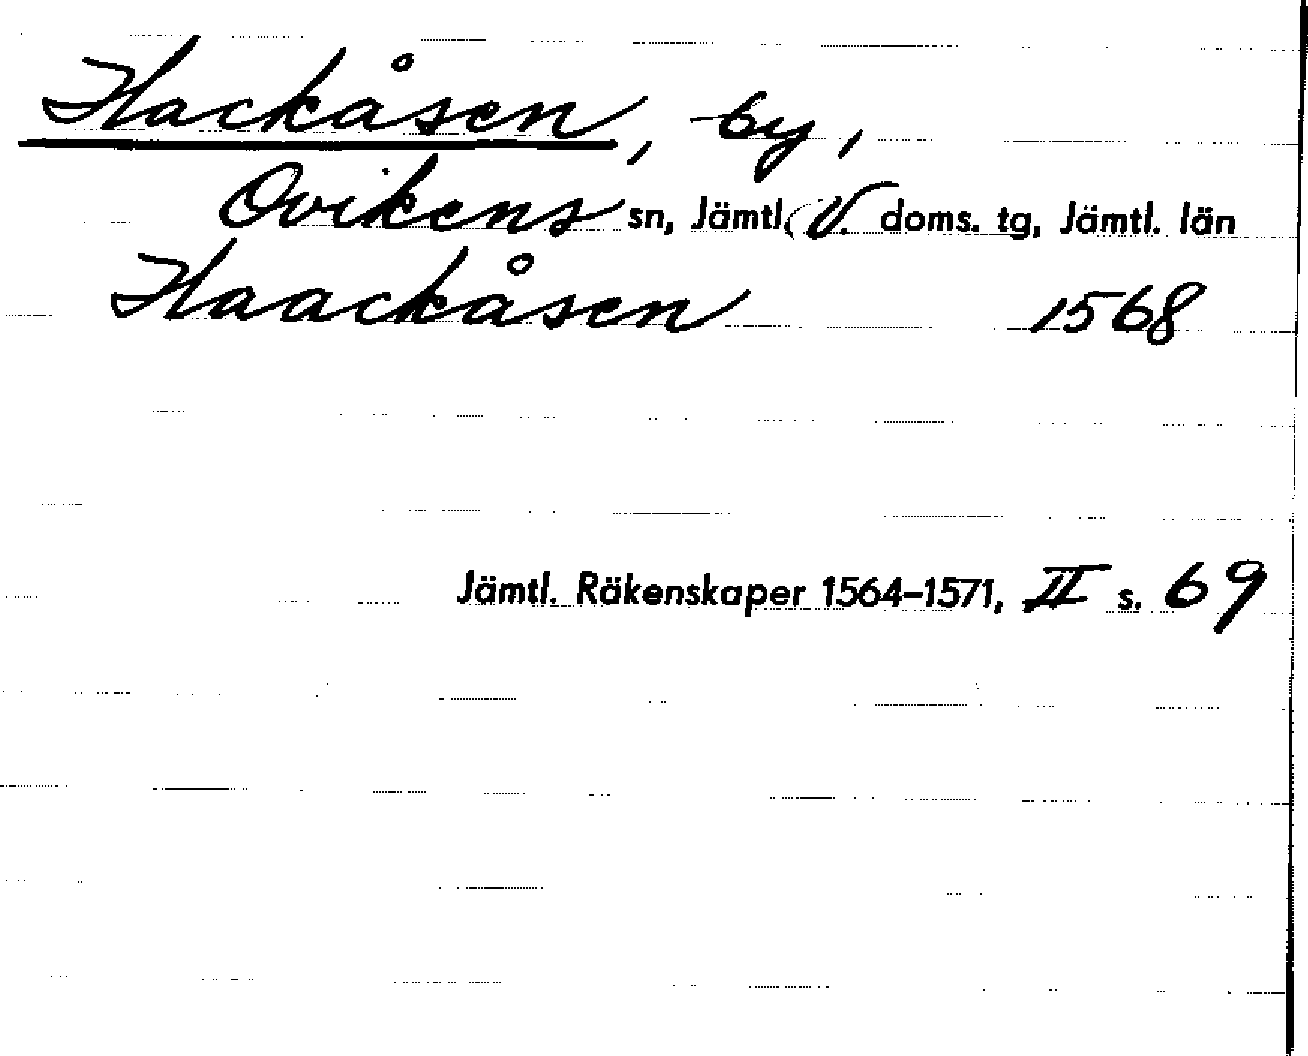 Hackåsen, by,
Ovikens sn, Jämtl. V. doms. tg, Jämtl. län
Haackåsen 1568
Jämtl. Räkenskaper 1564–1571, II s. 69